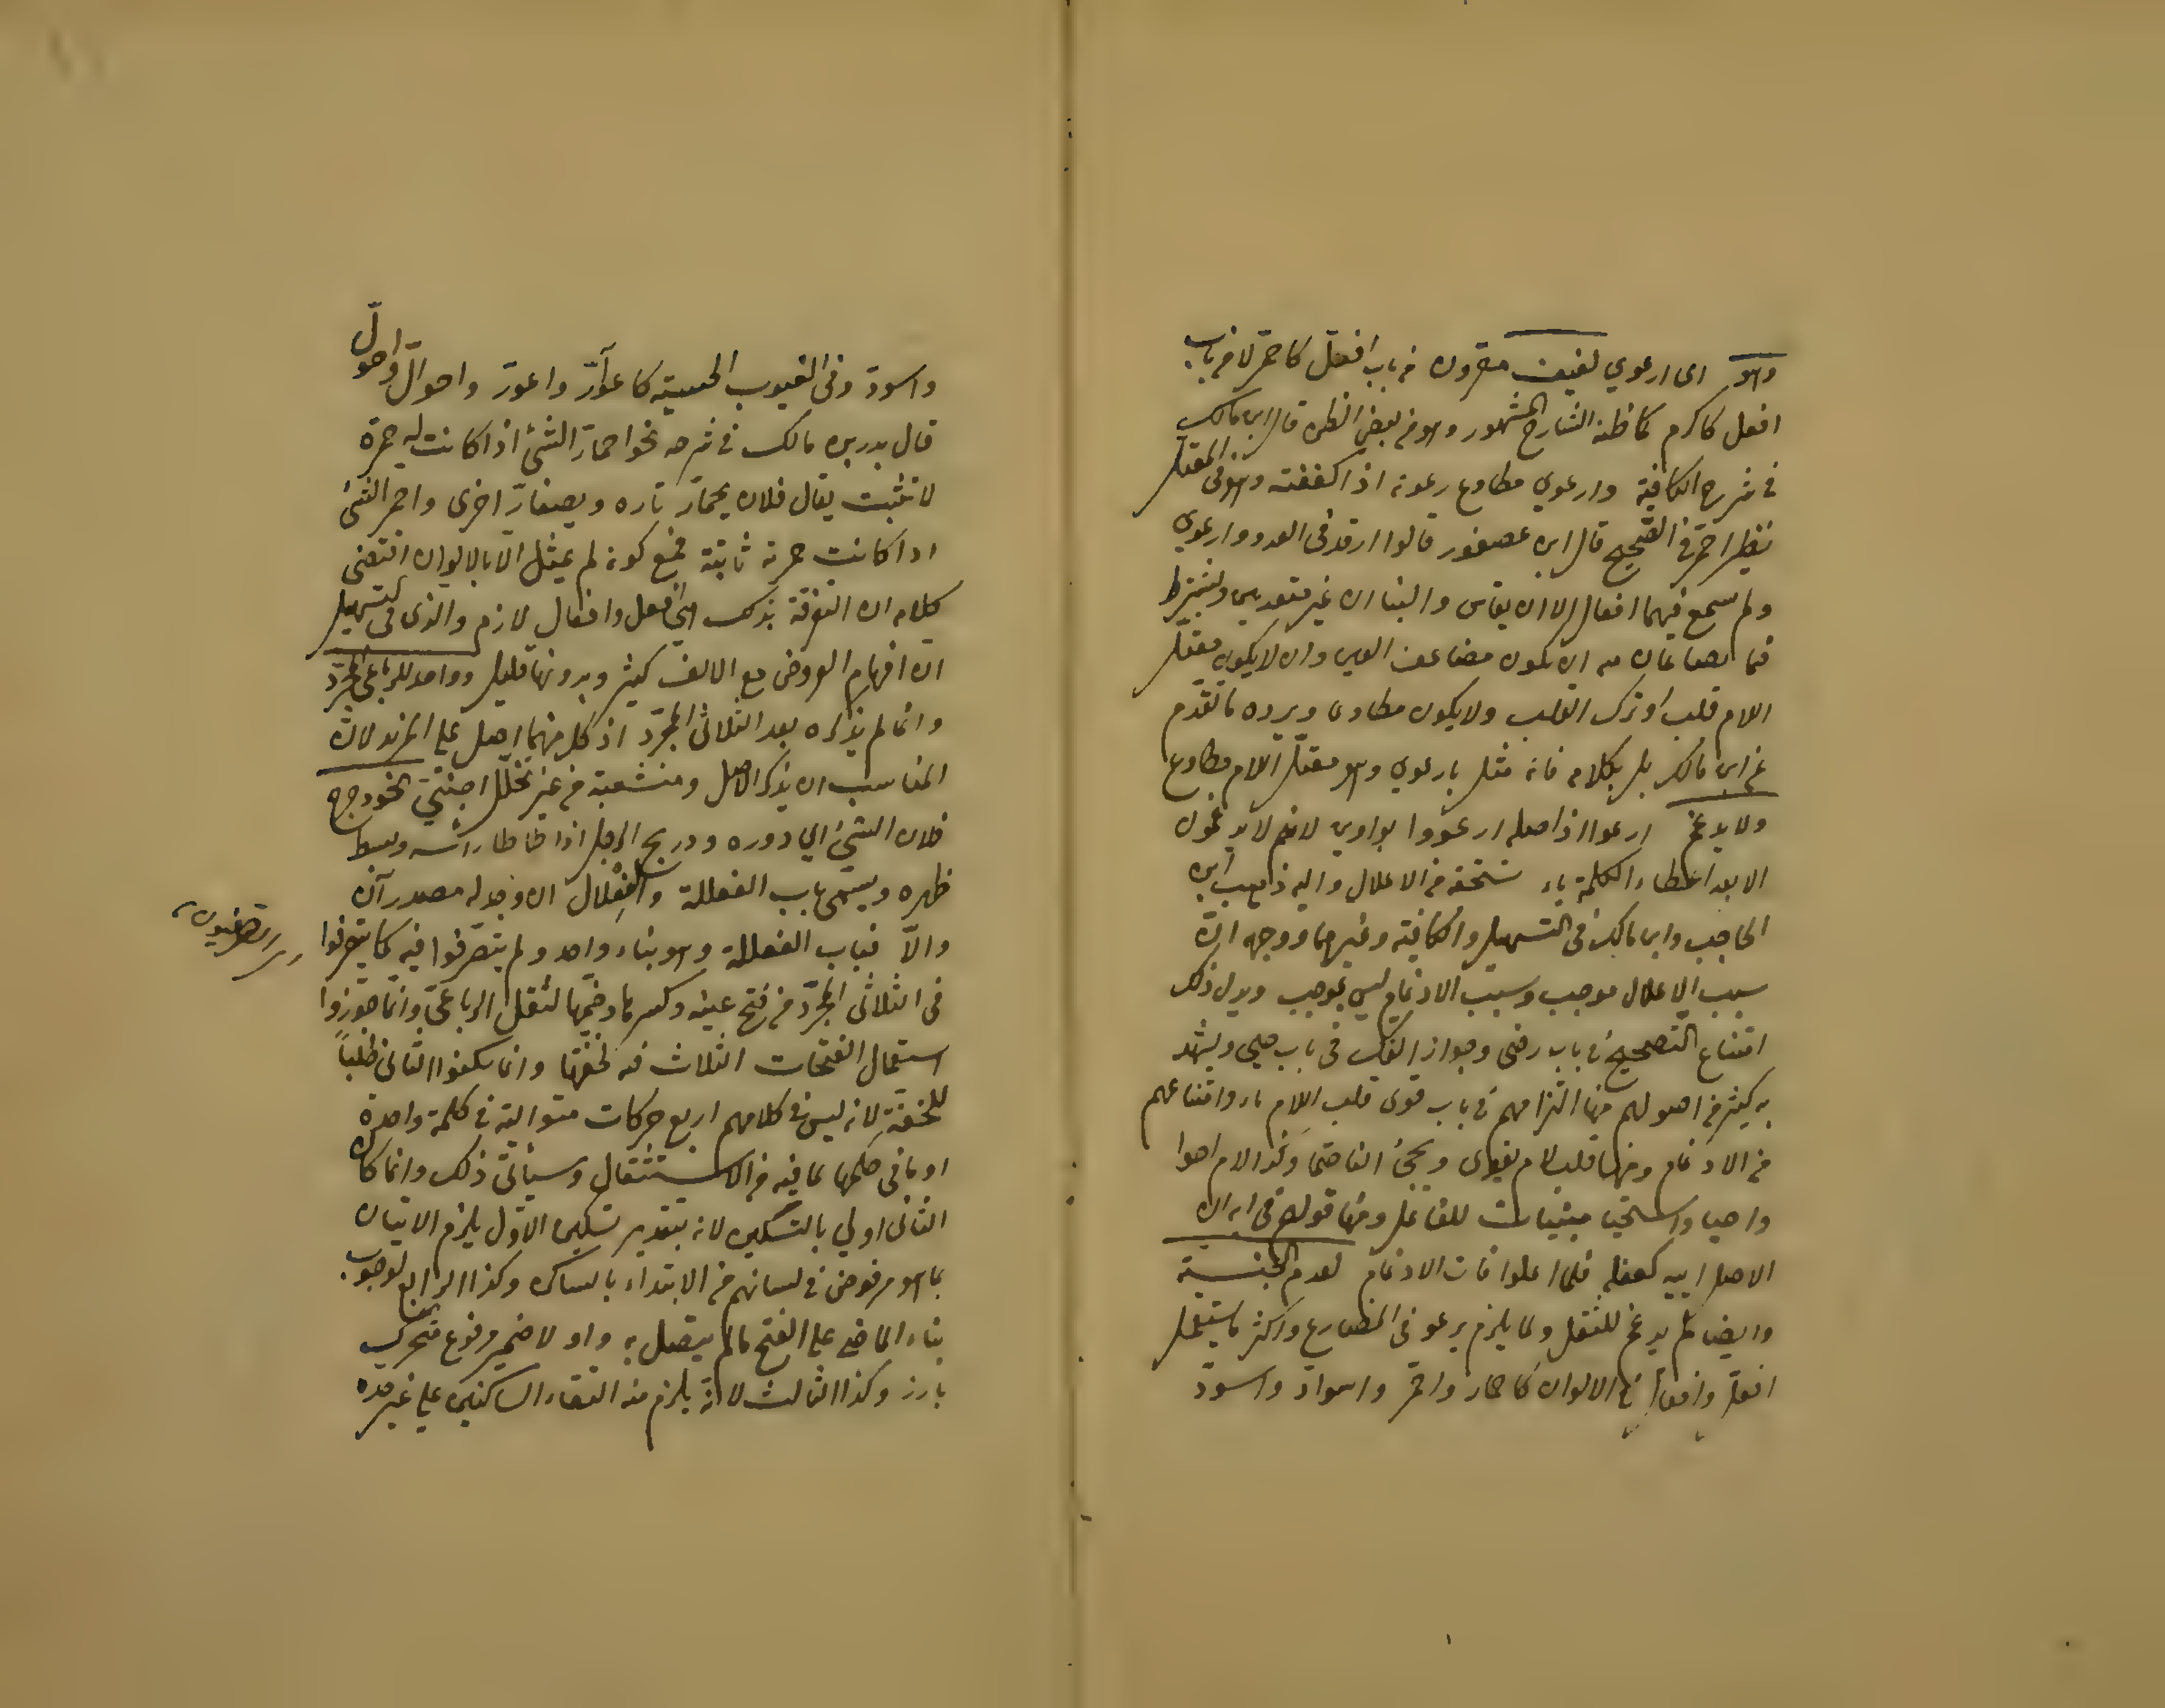 وهو اى ارعوي لفيف مقرون من باب افعلّ كاحمرّ لا من باب
افعل كاكرم كما ظنه الشارح المشهور وهو من بعض الظن قال ابن مالك
في شرح الكافية وارعوي مطاوع رعوته اذا كففته وهو في المعتل
نظير احمرّ في الصحيح قال ابن عصفور قالوا ارقد في العدو وارعوى
ولم يسمع فيهما افعالّ الا ان يقاس والبناان غير متعديين ويشترط
فيما يصاغان منه ان يكون مضاعف العين وان لا يكون معتل
اللام قلب او ترك القلب ولا يكون مطاوعا ويرده ما تقدم
عن ابن مالك بل بكلامه فانه مثل بارعوي وهو معتل اللام مطاوع
ولا يدغم ارعوا اذ اصله ارعووا بواوين لانهم لا يدغمون
الا بعد اعطاء الكلمة ما تستحقه من الاعلال واليه ذهب ابن
الحاجب وابن مالك في التسهيل والكافية وغيرهما ووجهه انّ
سبب الاعلال موجب وسبب الادغام ليس بموجب ويدل ذلك
امتناع التصحيح في باب رضى وجواز الفك في باب حيى ويشهد
به كثير من اصولهم منها التزامهم في باب قوى قلب اللام ياء وامتناعهم
من الادغام ومنها قلب لام يقوى ويحيى الفا حتما وكذا لام احوا
واحيا واستحيا مبنيات للفاعل ومنها قولهم في انه ان
الاصل اييه كفعله فلما اعلوا فات الادغام لعدم الجنسية
وايضا لم يدغم للثقل ولما يلزم يرعو في المضارع واكثر ما يستعمل
افعلّ وافعالّ في الالوان كاحمارّ واحمرّ واسوادّ واسودّ
واسودّ وفي العيوب الحسية كاعوارّ واعورّ واحوالّ واحولّ
قال بدر بن مالك في شرحه نحو احمارّ الشئ اذا كانت له حمرة
لا تثبت يقال فلان يحمارّ تاره ويصفارّ اخرى واحمر الشئ
اذا كانت حمرته ثابتة فمع كونه لم يمثل الّا بالالوان اقتضى
كلامه ان التفرقة بذلك بين افعل وافعال لازم والذى في التسهيل
انّ افهام العروض مع الالف كثير وبدونها قليل وواحد للرباعى المجرّد
وانما لم يذكره بعد الثلاثى المجرّد اذ كل منهما اصل على المزيد لانّ
المناسب ان يذكر الاصل ومنشعبة من غير تخلّل اجنبيّ نحو دحرج
فلان الشئ اي دوره ودربح الرجل اذا طاطا راسه وبسط
ظهره ويسمى باب الفعللة والفِعْلال ان وجد له مصدران
والّا فباب الفعللة وهو بناء واحد ولم يتصرّفوا فيه كما يتصرفوا
التصرفيون
في الثلاثى المجرّد من فتح عينه وكسرها وضمّها لثقل الرباعىّ وانّما جوّزوا
استعمال الفتحات الثلاث فيه لخفّتها وانما سكنوا الثانى طلباً
للخفّة لانه ليس في كلامهم اربع حركات متوالية في كلمة واحدة
او ما في حكمها لما فيه من الاستثقال وسيأتى ذلك وانما كان
الثانى اولي بالتسكين لانه بتقدير تسكين الاوّل يلزم الاتيان
بما هو مرفوض في لسانهم من الابتداء بالساكن وكذا الرابع لوجوب
بناء الماضى على الفتح ما لم يتصل به واو لا ضمير مرفوع متحرك
بارز وكذا الثالث لانّه يلزم منه التقاء الساكنين على غير حده